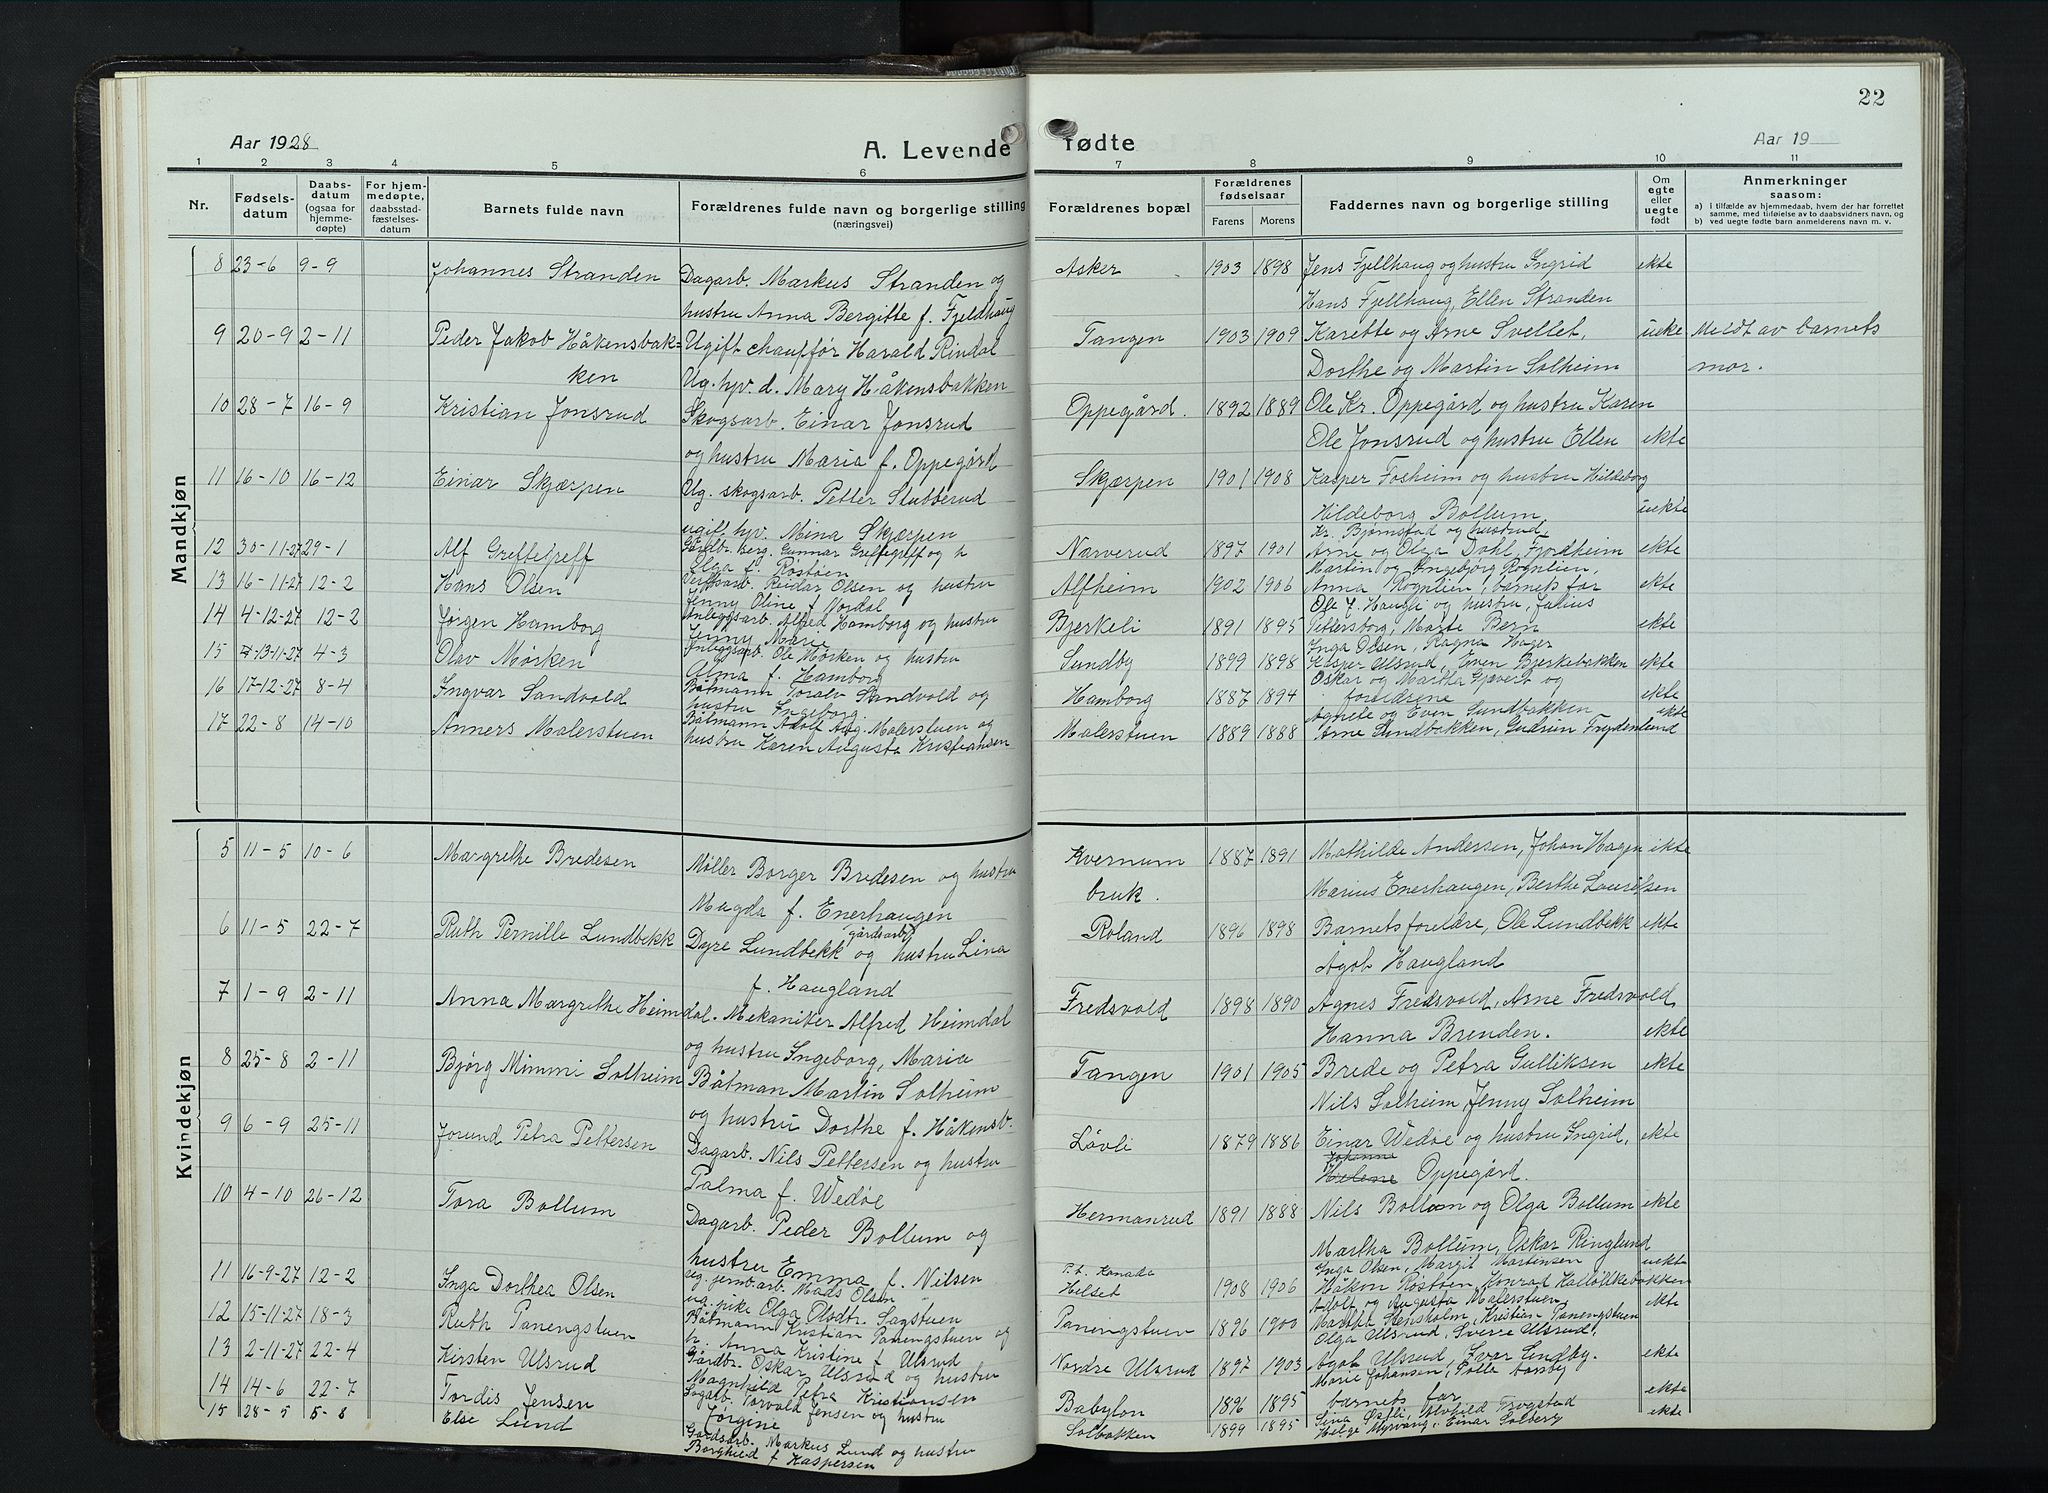 22
Aar 1928
A. Levende fødte
Aar 19
1 2 3 4 5 6 7 8 9 10 11
Nr.
Fødselsdatum
Daabsdatum (ogsaa for hjemmedøpte)
For hjemmedøpte, daabsstadfæstelsesdatum
Barnets fulde navn
Forældrenes fulde navn og borgerlige stilling (næringsvei)
Forældrenes bopæl
Forældrenes fødselsaar
Farens Morens
Faddernes navn og borgerlige stilling
Om egte eller uegte født
Anmerkninger saasom:
a) i tilfælde av hjemmedaab, hvem der har forrettet samme, med tilføielse av to daabsvidners navn, og
b) ved uegte fødte barn anmelderens navn m. v.
Mandkjøn
8 23-6 9-9 Johannes Stranden Dagarb. Markus Stranden og Asker 1903 1898 Jens Fjellhaug og hustru Ingrid ekte
hustru Anna Bergitte f. Fjeldhaug Hans Fjellhaug, Ellen Stranden
9 20-9 2-11 Peder Jakob Håkensbak= Ugift chauffør Harald Rindal Tangen 1903 1909 Karette og Arne Svellet, uekte Meldt av barnets
ken Ug. hp. d. Mary Håkensbakken Dorthe og Martin Solheim mor.
10 28-7 16-9 Kristian Jonsrud Skogsarb. Einar Jonsrud Oppegård. 1892 1889 Ole Kr. Oppegård og hustru Karen
og hustru Maria f. Oppegård Ole Jonsrud og hustru Ellen ekte
11 16-10 16-12 Einar Skjærpen Ug. skogsarb. Petter Stubberud Skjærpen 1901 1908 Kasper Fosheim og hustru Hildeborg
ugift hp. Mina Skjærpen Hildeborg Bollum uekte
12 30-11-27 29-1 Alf Greftegreff Gårdbr. Berg. Gunnar Greftegreff og h Narverud 1897 1901 Kr. Bjørnstad og hustrud
Olga f. Rostøen Arne og Olga Dahl, Fjordheim ekte
13 16-11-27 12-2 Hans Olsen Verksarb. Reidar Olsen og hustru Alfheim 1902 1906 Martin og Ingebjørg Rognlien,
Jenny Oline f. Nordal Anna Rognlien, barnets far ekte
14 4-12-27 12-2 Jørgen Hamborg Anleggsarb. Alfred Hamborg og hustru Bjerkeli 1891 1895 Ole J. Haugli og hustru, Julius
Jenny Marie Pettersborg, Marte Bern ekte
15 13-11-27 4-3 Olav Mørken Anleggsarb. Ole Mørken og hustru Sundby 1899 1898 Inga Olsen, Ragna Hager
Alma f. Hamborg Kasper Ulsrud, Even Bjerkebakken ekte
16 17-12-27 8-4 Ingvar Sandvold Båtmann Toralv Sandvold og Hamborg 1887 1894 Oskar og Martha Gjevert og
hustru Ingeborg. foreldrene ekte
17 22-8 14-10 Anners Malerstuen Båtmann Adolf Aug. Malerstuen og Malerstuen 1889 1888 Agnete og Even Sundbakken ekte
hustru Karen Augusta Kristiansen Arne Sundbakken, Gudrun Frydenlund
Kvindekjøn
5 11-5 10-6 Margrethe Bredesen Møller Borger Bredesen og hustru Kvernum 1887 1891 Mathilde Andersen, Johan Hagen ekte
Magda f. Enerhaugen bruk. Marius Enerhaugen, Berthe Lauritsen
6 11-5 22-7 Ruth Pernille Lundbekk Dyre Lundbekk gårdsarb. og hustru Lina Roland 1896 1898 Barnets foreldre, Ole Lundbekk ekte
f. Haugland Agob Haugland
7 1-9 2-11 Anna Margrethe Heimdal. Mekaniker Alfred Heimdal Fredsvold 1898 1890 Agnes Fredsvold, Arne Fredsvold
og hustru Ingeborg, Maria Hanna Brenden. ekte
8 25-8 2-11 Bjørg Mimmi Solheim Båtman Martin Solheim Tangen 1901 1905 Brede og Petra Gulliksen ekte
og hustru Dorthe f. Håkensb. Nils Solheim, Jenny Solheim
9 6-9 25-11 Jorund Petra Pettersen Dagarb. Nils Pettersen og hustru Løvli 1879 1886 Einar Wedøe og hustru Ingrid, ekte
Palma f. Wedøe Johanne Helene Oppegård.
10 4-10 26-12 Tora Bollum Dagarb. Peder Bollum og Hermanrud 1891 1888 Nils Bollum og Olga Bollum ekte
hustru Emma f. Nilsen Martha Bollum, Oskar Ringlund
11 16-9-27 12-2 Inga Dorthea Olsen ug. jernb.arb. Mads Olsen P.t. Kanada 1908 1906 Inga Olsen, Margit Martinsen uekte
ug. pike Olga Olsdtr. Sagstuen Helset Håkon Røstøen, Konrad Kalløkkebakken
12 15-11-27 18-3 Ruth Panengstuen Båtmann Kristian Panengstuen og Paningstuen 1896 1900 Adolf og Augusta Malerstuen, ekte
h. Anna Kristine f. Ulsrud Marthe Stensholm, Kristian Panengstuen
13 2-11-27 22-4 Kirsten Ulsrud Gårdbr. Oskar Ulsrud og hustru Nordre Ulsrud 1897 1903 Olga Ulsrud, Sverre Ulsrud,
Magnhild Petra Kristiansen Agob Ulsrud, Ivar Lundby. ekte
14 14-6 22-7 Tordis Jensen Sagarb. Torvald Jensen og hustru Babylon 1896 1895 Marie Johansen,
Jørgine barnets far ekte
15 28-5 5-8 Else Lund Gårdsarb. Markus Lund og hustru Solbakken 1899 1895 Alvhild Trogstad ekte
Borghild f Kaspersen Helge Myrvang, Einar Solberg